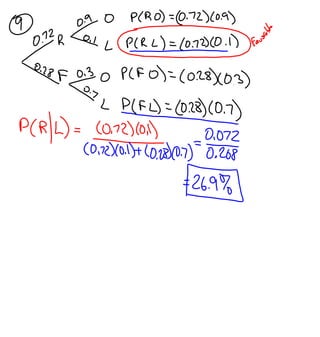 9
0.72 R 0.9 O P(RO)=(0.72)(0.9)
0.1 L P(RL)=(0.72)(0.1) Favorable
0.28 F 0.3 O P(FO)=(0.28)(0.3)
0.7 L P(FL)=(0.28)(0.7)
P(R|L)= (0.72)(0.1) / (0.72)(0.1)+(0.28)(0.7) = 0.072 / 0.268
=26.9%